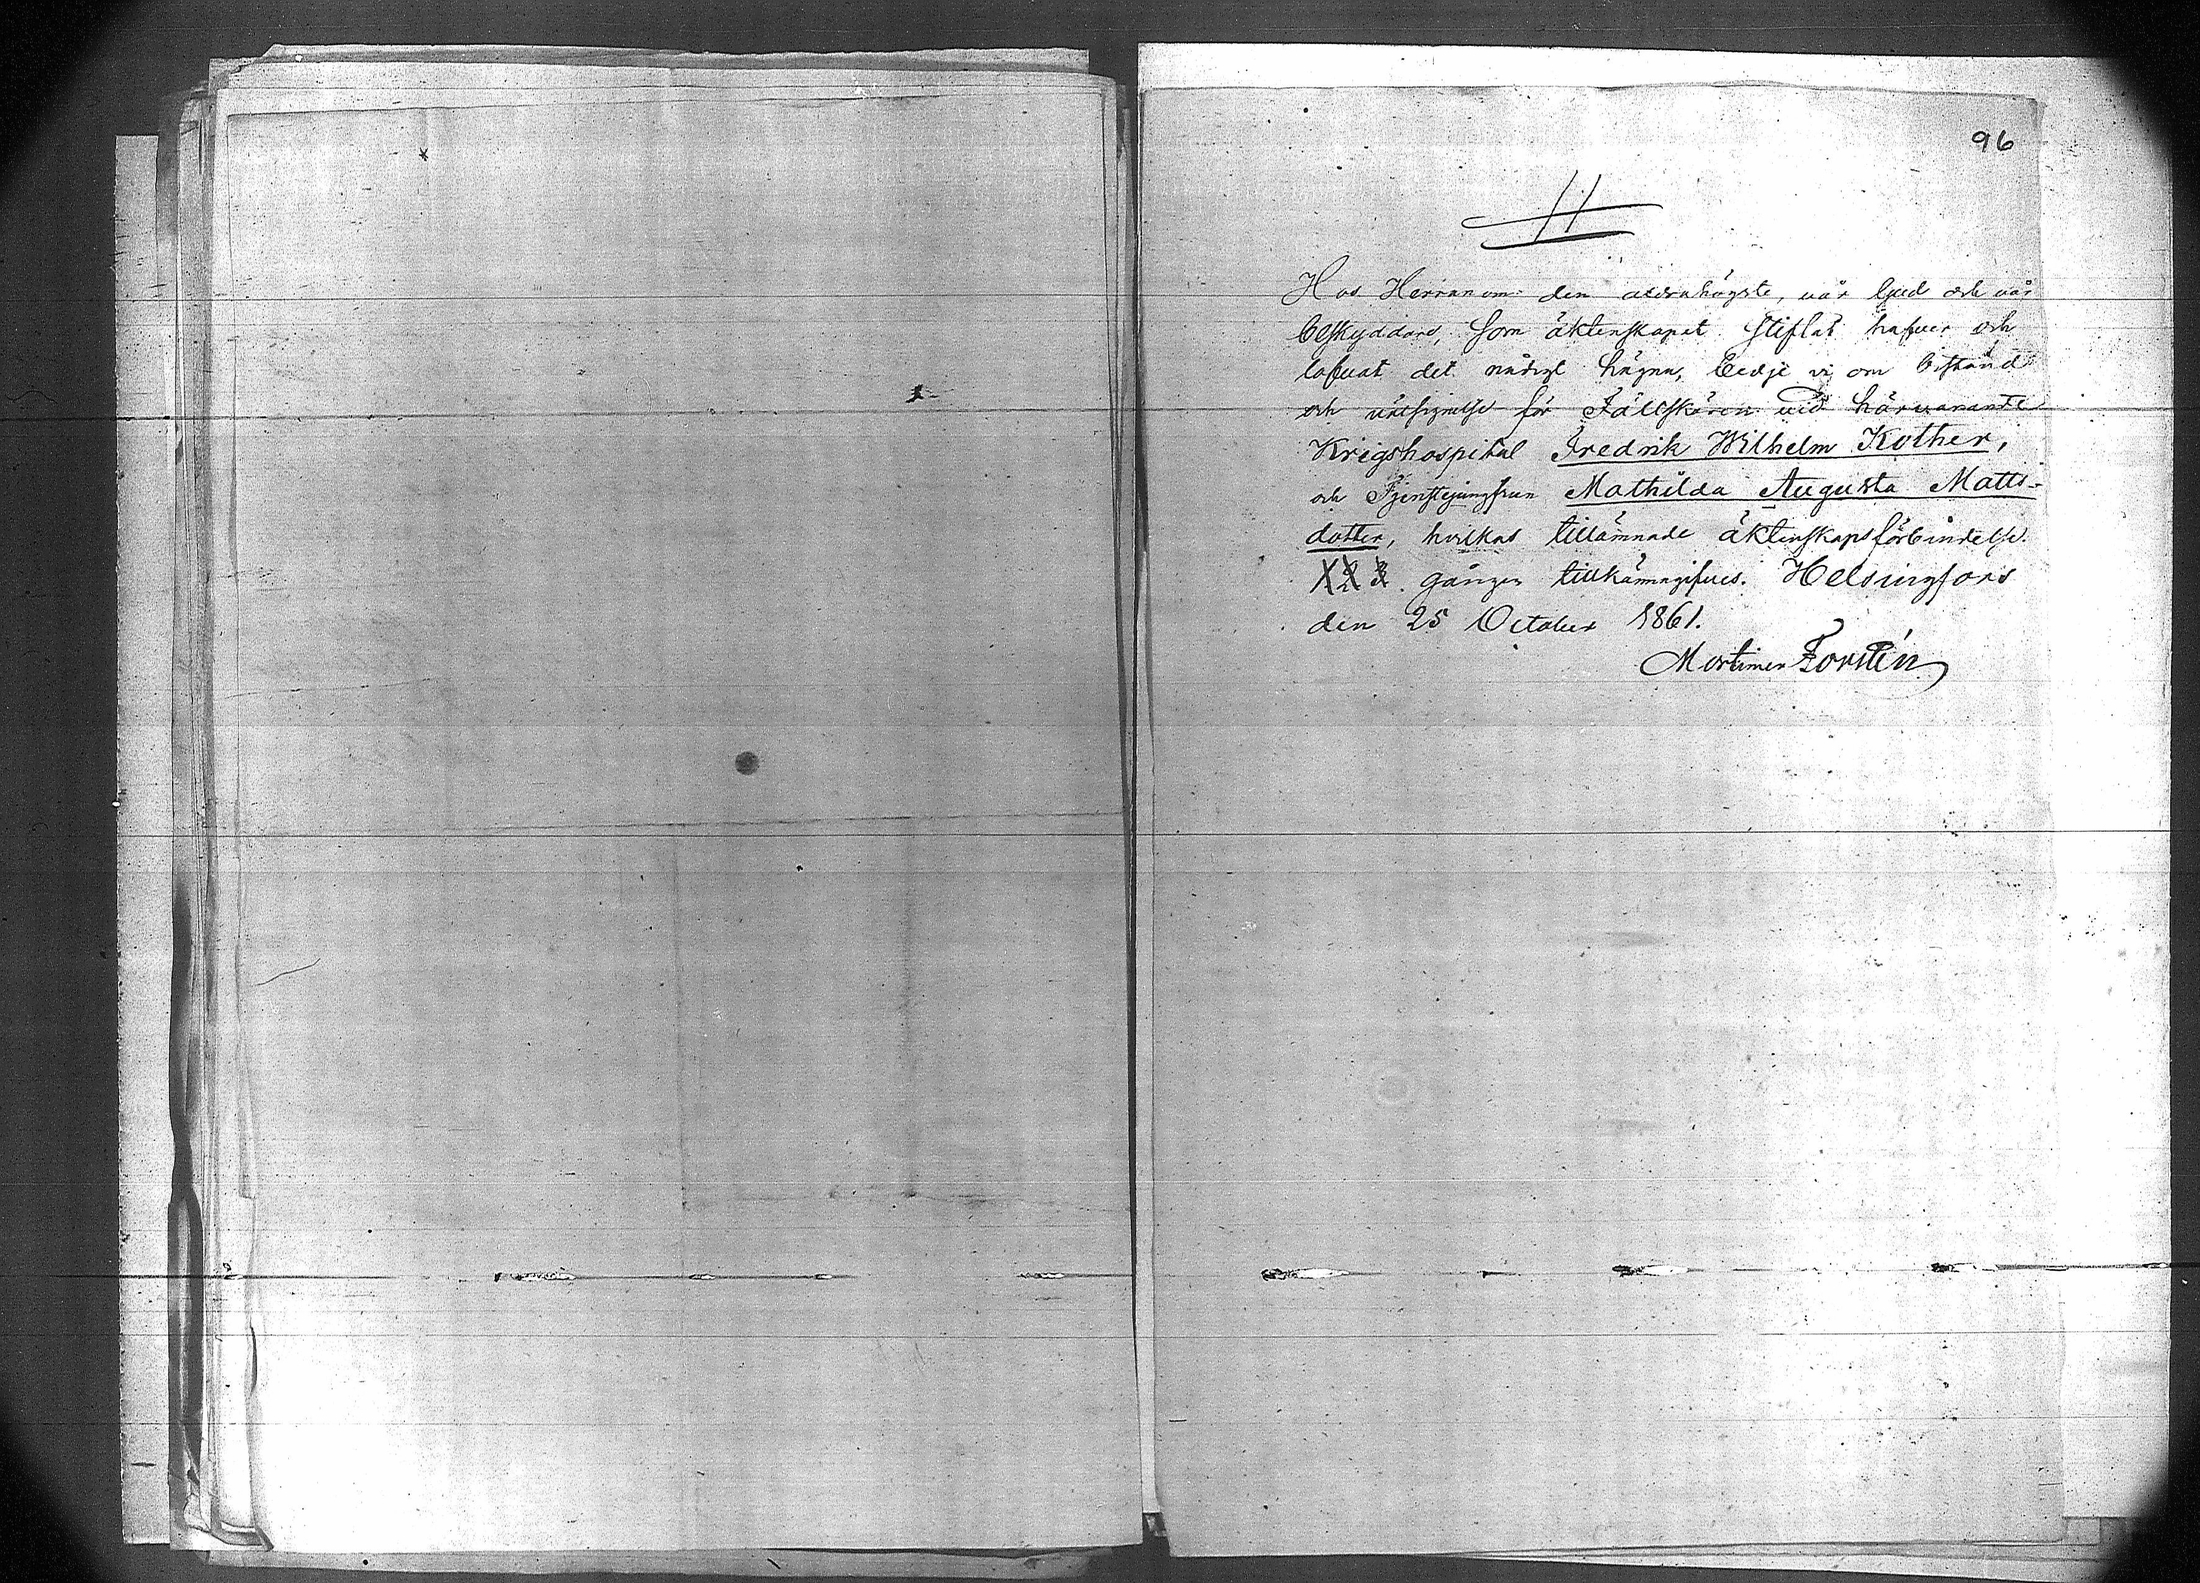 96
Hos Herranom den aldrahögste, vår hjelp och vår
beskyddare, som äktenskapet stiftat hafver och
lofvat det nådigt hägna, bedje vi om bistånd
och välsignelse för Fältskären vid härvarande
Krigshospital Fredrik Wilhelm Kother,
och Tjenstejungfrun Mathilda Augusta Matts-
dotter, hvilkas tillämnade äktenskapsförbindelse
1 2 3 gången tillkännagifves. Helsingfors
den 25 October 1861.
Mortimer Forstén